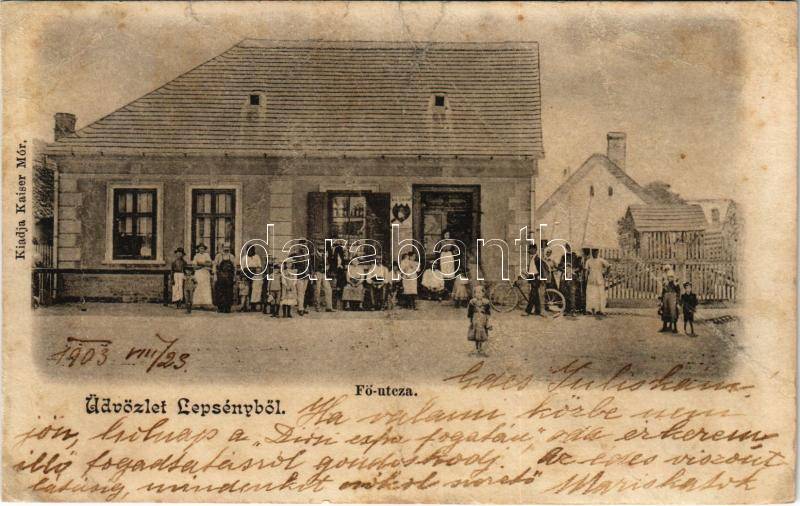 Kiadja Kaiser Mór.
darabanth.com
1903 VIII/23.
Fö-utcza.
Üdvözlet Lepsényből.
Edes Juliskám!
Ha valami közbe nem
jön, holnap a „Dioi fogatán" oda érkezem
illő fogadtatásról gondoskodj. az édes viszont
látásig, mindenkit csókol szerető
Mariskátok